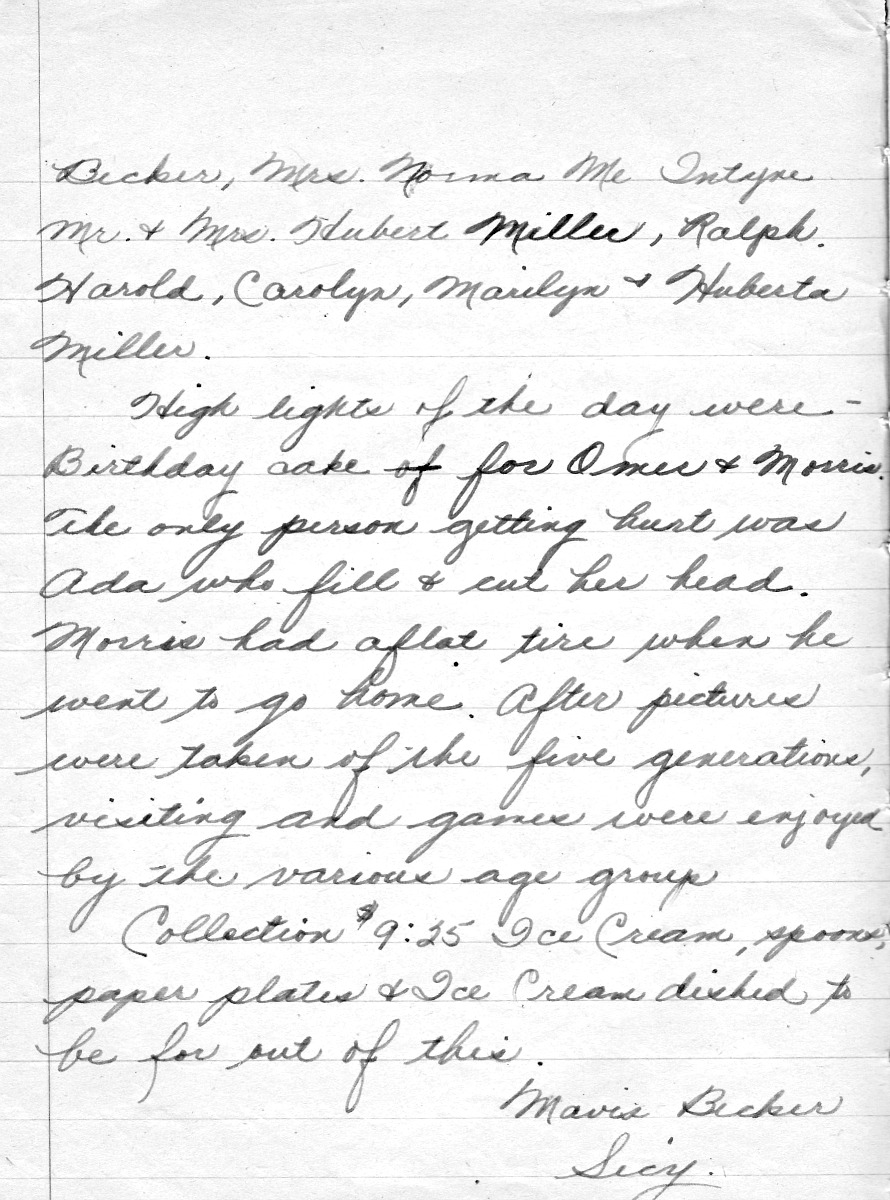 Becker, Mrs. Norma Mc Intyre
Mr. & Mrs. Hubert Miller, Ralph.
Harold, Carolyn, Marilyn & Huberta
Miller.
High lights of the day were -
Birthday cake of for Omer & Morris.
The only person getting hurt was
Ada who fill & cut her head.
Morris had aflat tire when he
went to go home. After pictures
were taken of the five generations,
visiting and games were enjoyed
by the various age group
Collection $9:25 Ice Cream, spoons,
paper plates & Ice Cream dished to
be for out of this.
Mavis Becker
Secy.